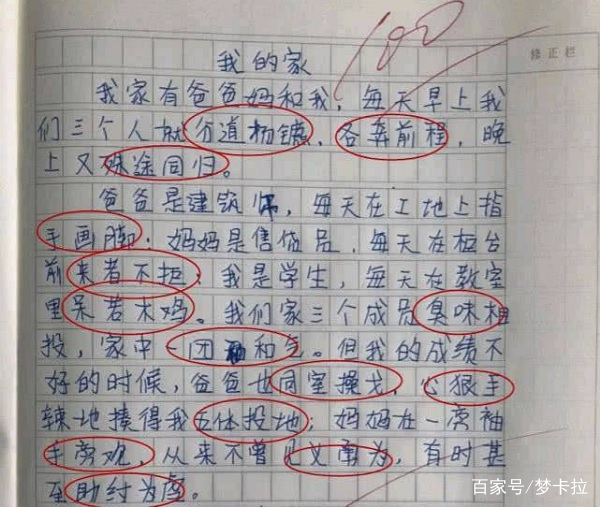 100
修正栏
我的家
我家有爸爸妈和我，每天早上我
们三个人就分道扬镳，各奔前程，晚
上又殊途同归。
爸爸是建筑师，每天在工地上指
手画脚；妈妈是售货员，每天在柜台
前来者不拒；我是学生，每天在教室
里呆若木鸡。我们家三个成员臭味相
投，家中一团和气。但我的成绩不
好的时候，爸爸也同室操戈，心狠手
辣地揍得我五体投地；妈妈在一旁袖
手旁观，从来不曾见义勇为，有时甚
至助纣为虐。
百家号/梦卡拉